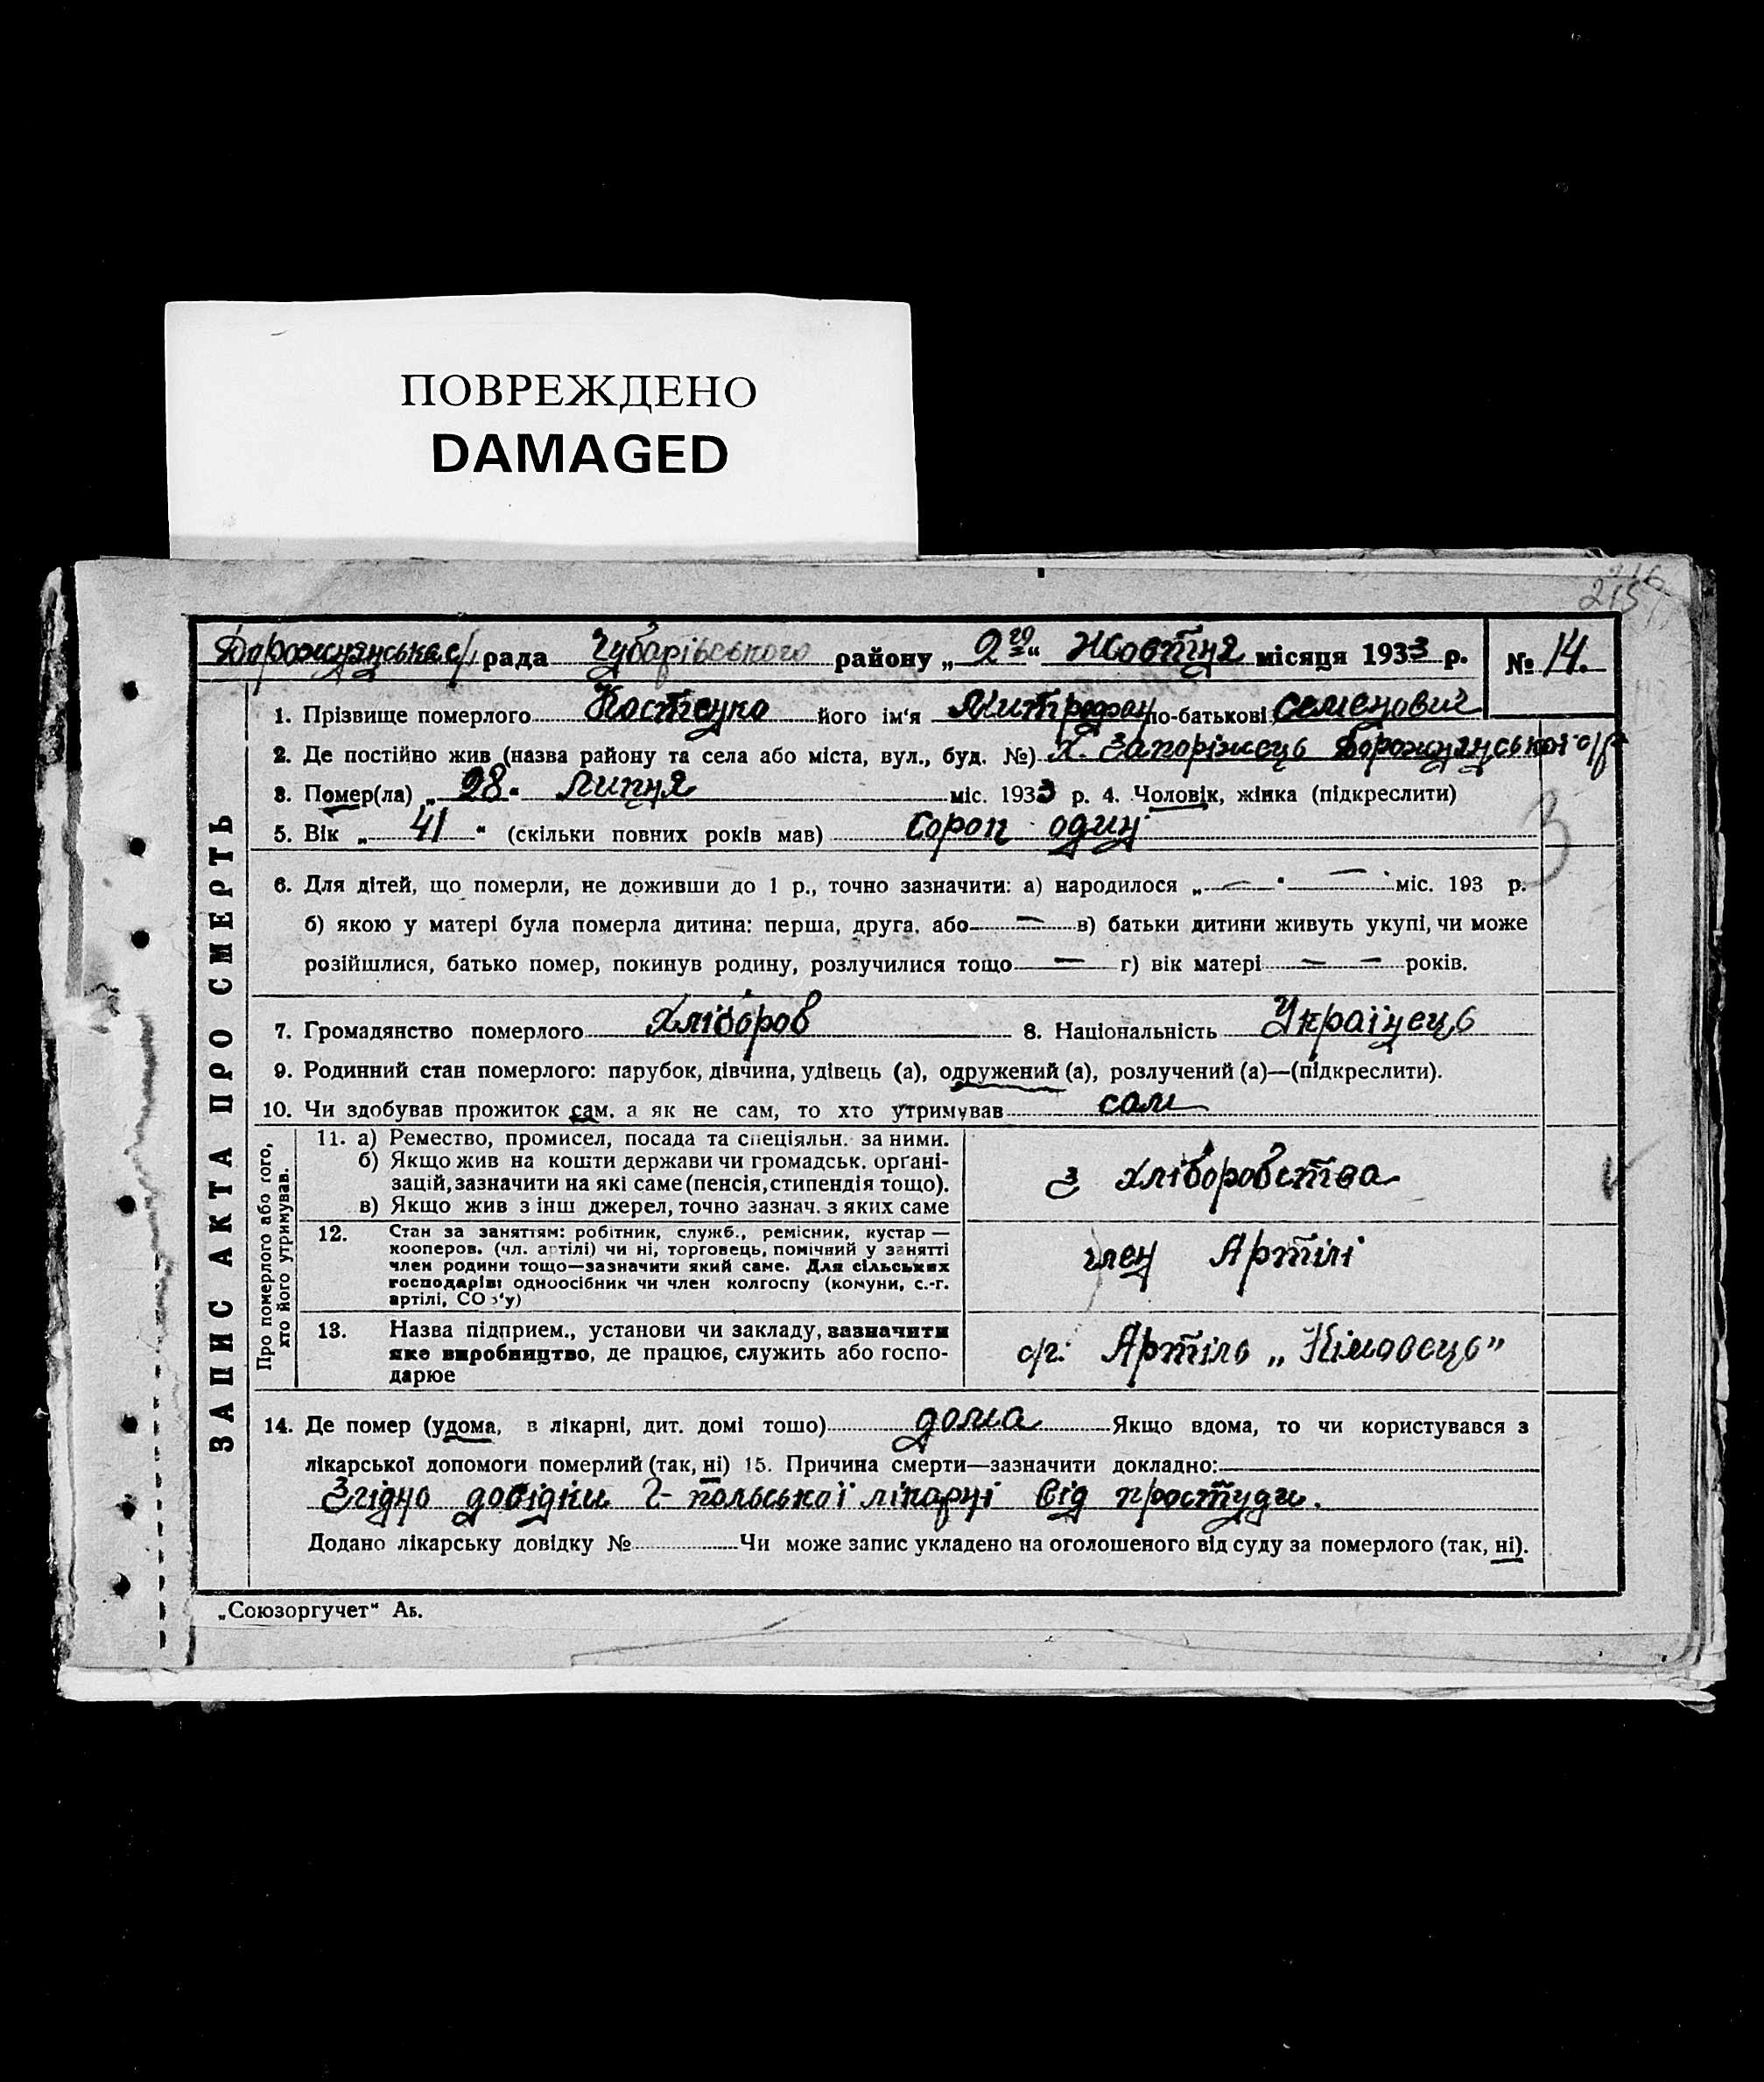 ПОВРЕЖДЕНО
DAMAGED
215
Дорожнянська с/ рада Чубарівського району „ 2го “ Жовтня місяця 1933 р. № 14.
ЗАПИС АКТА ПРО СМЕРТЬ
1. Прізвище померлого Костенко його ім'я Митрофан по-батькові Семенович
2. Де постійно жив (назва району та села або міста, вул., буд. №) х. Запоріжець Дорожнянської с/р
3. Помер(ла) „ 28 “ Липня міс. 1933 р. 4. Чоловік, жінка (підкреслити)
5. Вік „ 41 “ (скільки повних років мав) Сорок один
3
6. Для дітей, що померли, не доживши до 1 р., точно зазначити: а) народилося „ — “ — міс. 193 р.
б) якою у матері була померла дитина: перша, друга, або — в) батьки дитини живуть укупі, чи може
розійшлися, батько помер, покинув родину, розлучилися тощо — г) вік матері — — років.
7. Громадянство померлого Хлібороб 8. Національність Українець
9. Родинний стан померлого: парубок, дівчина, удівець (а), одружений (а), розлучений (а)—(підкреслити).
10. Чи здобував прожиток сам, а як не сам, то хто утримував сам
Про померлого або того,
хто його утримував.
11. а) Ремество, промисел, посада та спеціяльн. за ними.
б) Якщо жив на кошти держави чи громадськ. органі-
зацій, зазначити на які саме (пенсія, стипендія тощо).
в) Якщо жив з інш джерел, точно зазнач. з яких саме
з хліборобства
12. Стан за заняттям: робітник, служб., ремісник, кустар —
кооперов. (чл. артілі) чи ні, торговець, помічний у занятті
член родини тощо—зазначити який саме. Для сільських
господарів: одноосібник чи член колгоспу (комуни, с.-г.
артілі, СОЗ'у)
член Артілі
13. Назва підприєм., установи чи закладу, зазначити
яке виробництво, де працює, служить або госпо-
дарює
с/г. Артіль „Кімовець”
14. Де помер (удома, в лікарні, дит. домі тошо) дома Якщо вдома, то чи користувався з
лікарської допомоги померлий (так, ні) 15. Причина смерти—зазначити докладно:
Згідно довідки Г-польської лікарні від простуди.
Додано лікарську довідку № Чи може запис укладено на оголошеного від суду за померлого (так, ні).
„Союзоргучет“ Аь.